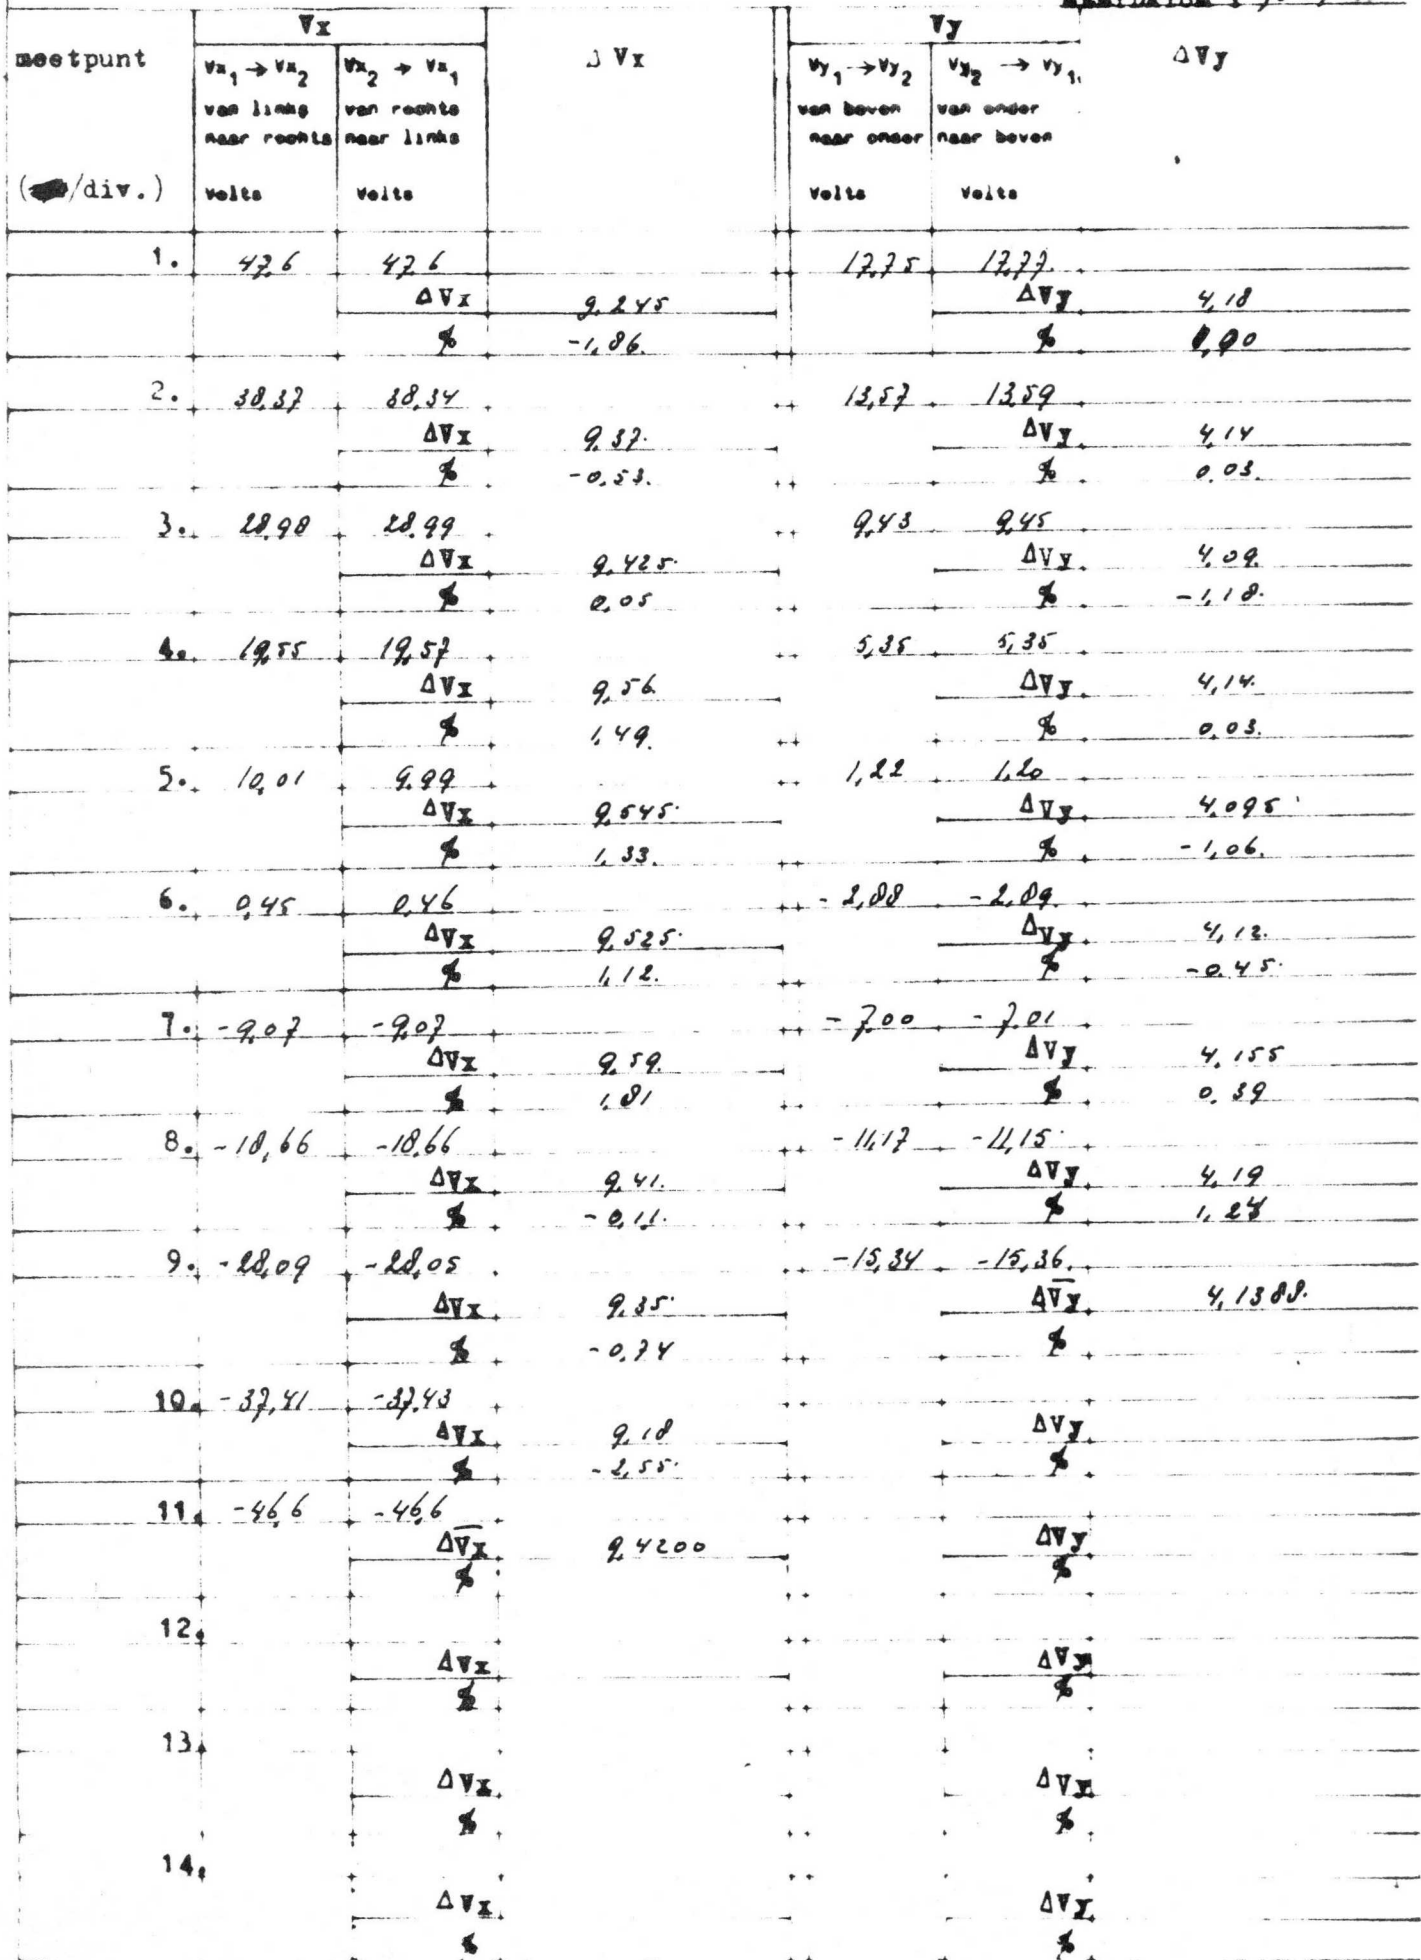 Vx Vy
meetpunt Δ Vx Δ Vy
Vx1 → Vx2 Vx2 → Vx1 Vy1 → Vy2 Vy2 → Vy1
van links van rechts van boven van onder
naar rechts naar links naar onder naar boven
( /div.) Volts Volts Volts Volts
1. 47,6 47,6 17,75 17,77
ΔVx 9,245 ΔVy 4,18
% -1,86 %
2. 38,37 38,34 13,57 13,59
ΔVx 9,37 ΔVy 4,14
% -0,53 % 0,03
3. 28,98 28,99 9,43 9,45
ΔVx 9,425 ΔVy 4,09
% 0,05 % -1,18
4. 19,55 19,57 5,35 5,35
ΔVx 9,56 ΔVy 4,14
% 1,49 % 0,03
5. 10,01 9,99 1,22 1,20
ΔVx 9,545 ΔVy 4,095
% 1,33 % -1,06
6. 0,45 0,46 -2,88 -2,89
ΔVx 9,525 ΔVy 4,12
% 1,12 % -0,45
7. -9,07 -9,07 -7,00 -7,01
ΔVx 9,59 ΔVy 4,155
% 1,81 % 0,39
8. -18,66 -18,66 -11,17 -11,15
ΔVx 9,41 ΔVy 4,19
% -0,11 % 1,24
9. -28,09 -28,05 -15,34 -15,36
ΔVx 9,35 ΔV̄y 4,1388
% -0,74 %
10. -37,41 -37,43
ΔVx 9,18 ΔVy
% -2,55 %
11. -46,6 -46,6
ΔV̄x 9,4200 ΔVy
% %
12.
ΔVx ΔVy
% %
13.
ΔVx ΔVy
% %
14.
ΔVx ΔVy
% %